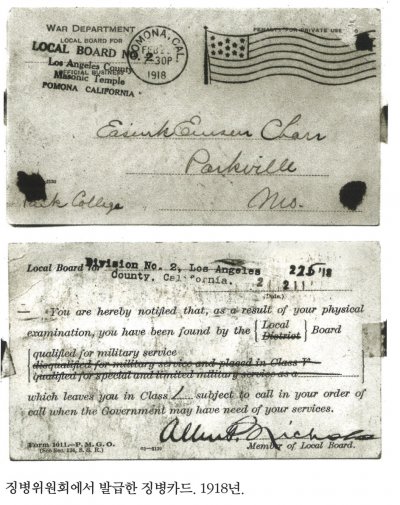 WAR DEPARTMENT
LOCAL BOARD FOR
LOCAL BOARD NO. 2
Los Angeles County
OFFICIAL BUSINESS
Masonic Temple
POMONA CALIFORNIA
POMONA, CAL.
FEB
30P
1918
PENALTY FOR PRIVATE USE
Charr
Parkville
Mo.
Park College
Local Board for Division No. 2, Los Angeles
County. California.
(Date.)
You are hereby notified that, as a result of your physical
examination, you have been found by the Local District Board
qualified for military service
disqualified for military service and placed in Class V
qualified for special and limited military service as a
which leaves you in Class 1 subject to call in your order of
call when the Government may have need of your services.
Form 1011—P.M.G.O.
Member of Local Board.
징병위원회에서 발급한 징병카드. 1918년.